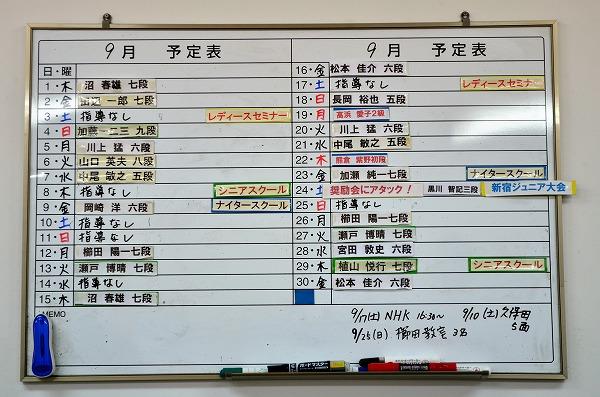 9月 予定表
日・曜
1・木 沼 春雄 七段
2・金 田辺 一郎 七段
3・土 指導なし レディースセミナー
4・日 加藤一二三 九段
5・月 川上 猛 六段
6・火 山口 英夫 八段
7・水 中尾 敏之 五段
8・木 指導なし シニアスクール
9・金 岡崎 洋 六段 ナイタースクール
10・土 指導なし
11・日 指導なし
12・月 櫛田 陽一 七段
13・火 瀬戸 博晴 七段
14・水 指導なし
15・木 沼 春雄 七段
MEMO
9月 予定表
16・金 松本 佳介 六段
17・土 指導なし レディースセミナー
18・日 長岡 裕也 五段
19・月 高浜 愛子2級
20・火 川上 猛 六段
21・水 中尾 敏之 五段
22・木 熊倉 紫野初段
23・金 加瀬 純一七段 ナイタースクール
24・土 奨励会にアタック! 黒川 智記三段 新宿ジュニア大会
25・日 指導なし
26・月 櫛田 陽一 六段
27・火 瀬戸 博晴 七段
28・水 宮田 敦史 六段
29・木 植山 悦行 七段 シニアスクール
30・金 松本 佳介 六段
9/17(土) NHK 16:30〜 9/10(土)久保田
5面
9/25(日) 櫛田教室 3名
ボードマスター